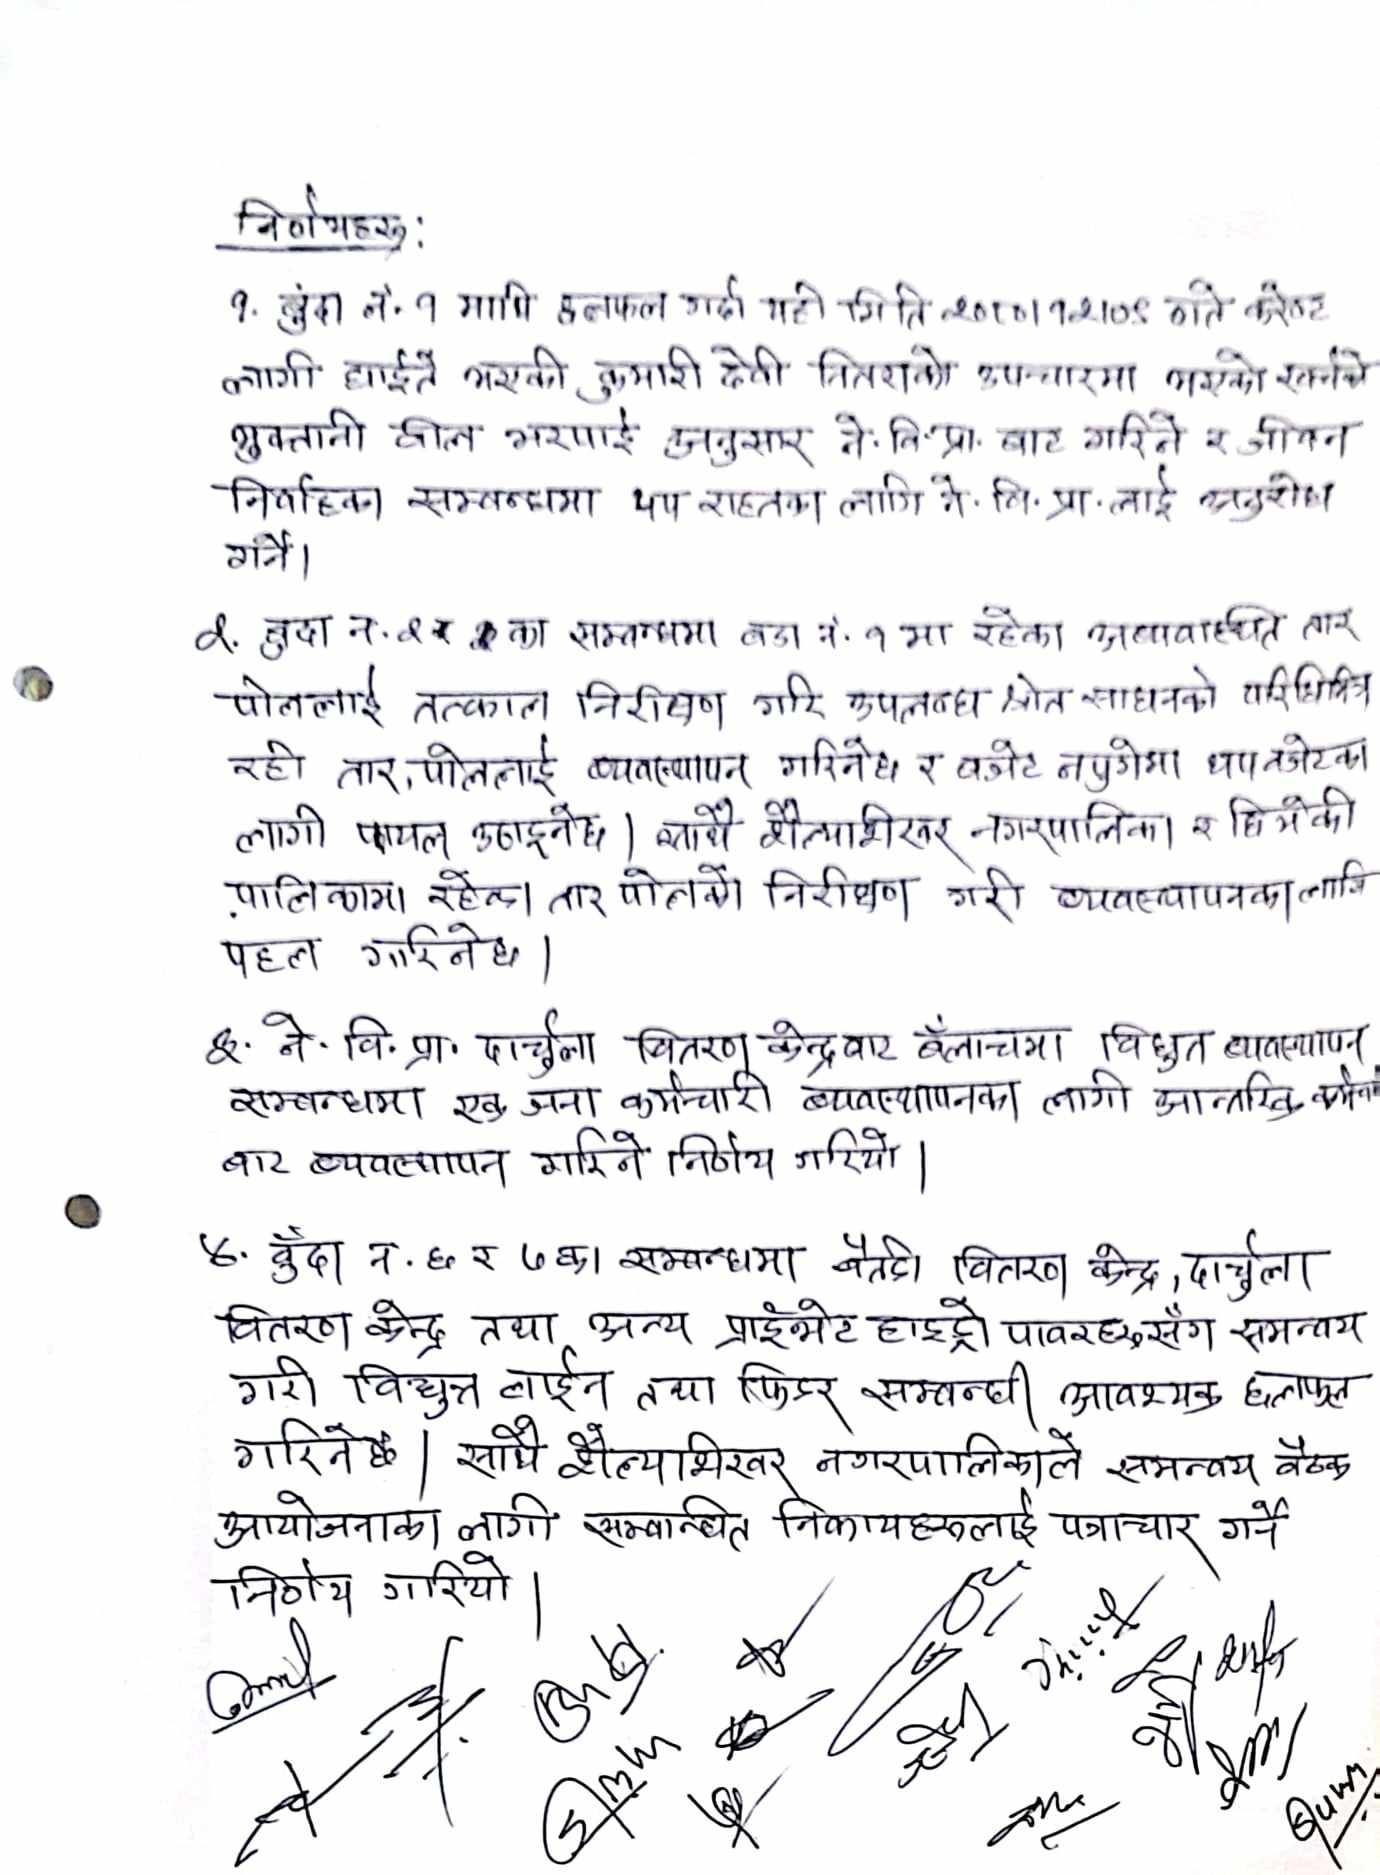 निर्णयहरु:
१. बुंदा नं. १ माथि छलफल गर्दा यही मिति २०८०।१२।०९ गते करेण्ट
लागी घाईते भएकी कुमारी देवी उपचारमा भएको खर्चको
भुक्तानी बील भरपाई अनुसार ने. वि. प्रा. बाट गरिने र जीवन
निर्वाहका सम्बन्धमा थप राहतका लागि ने. वि. प्रा. लाई अनुरोध
गर्ने।
२. बुदा न. २ र का सम्बन्धमा वडा नं. १ मा रहेका अव्यवस्थित तार
पोललाई तत्काल निरीक्षण गरि उपलब्ध श्रोत साधनको परिधिभित्र
रही तार, पोललाई व्यवस्थापन गरिनेछ र वजेट नपुगेमा थप वजेटका
लागी फायल उठाइनेछ। साथै शैल्यशिखर नगरपालिका र छिमेकी
पालिकामा रहेका तार पोलको निरीक्षण गरी व्यवस्थापनका लागि
पहल गरिनेछ।
३. ने. वि. प्रा. दार्चुला वितरण केन्द्रवाट बैंलाचमा विधुत व्यवस्थापन
सम्बन्धमा एक जना कर्मचारी व्यवस्थापनका लागी आन्तरिक
बाट व्यवस्थापन गरिने निर्णय गरियो।
४. बुँदा न. ६ र ७ का सम्बन्धमा बैतडी वितरण केन्द्र, दार्चुला
वितरण केन्द्र तथा अन्य प्राईभेट हाइड्रो पावरहरुसँग समन्वय
गरी विद्युत लाईन तथा फिडर सम्बन्धी आवश्यक छलफल
गरिनेछ। साथै शैल्यशिखर नगरपालिकाले समन्वय बैठक
आयोजनाका लागी सम्बन्धित निकायहरुलाई पत्राचार गर्ने
निर्णय गरियो।